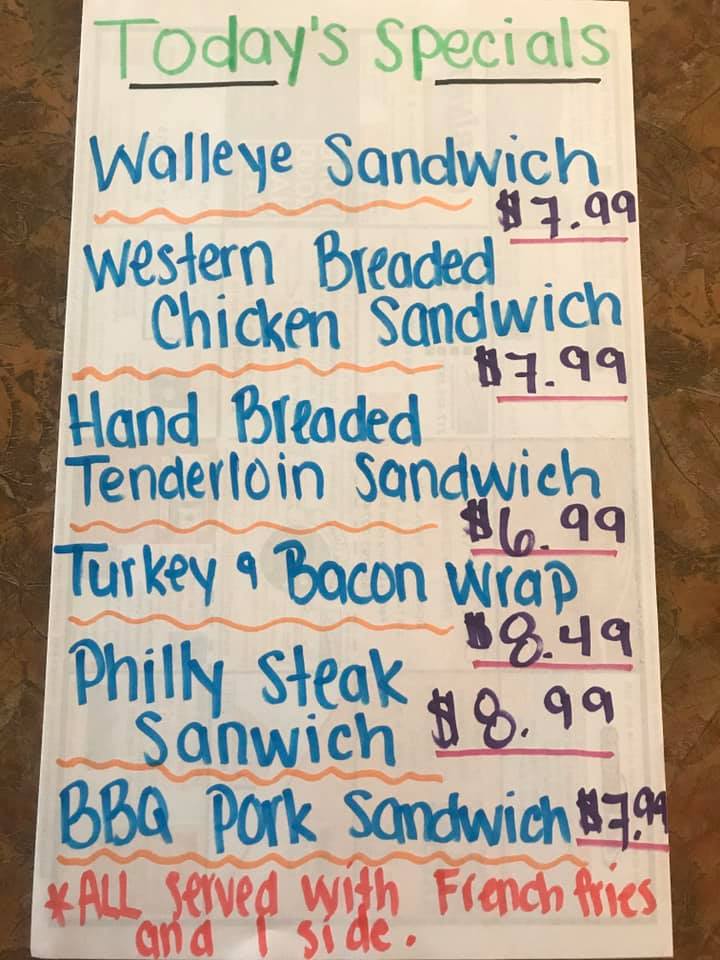 Today's Specials
Walleye Sandwich
$7.99
Western Breaded
Chicken Sandwich
$7.99
Hand Breaded
Tenderloin Sandwich
$6.99
Turkey & Bacon Wrap
$8.49
Philly Steak
Sanwich $8.99
BBQ Pork Sandwich $7.99
*ALL served with French fries
and 1 side.